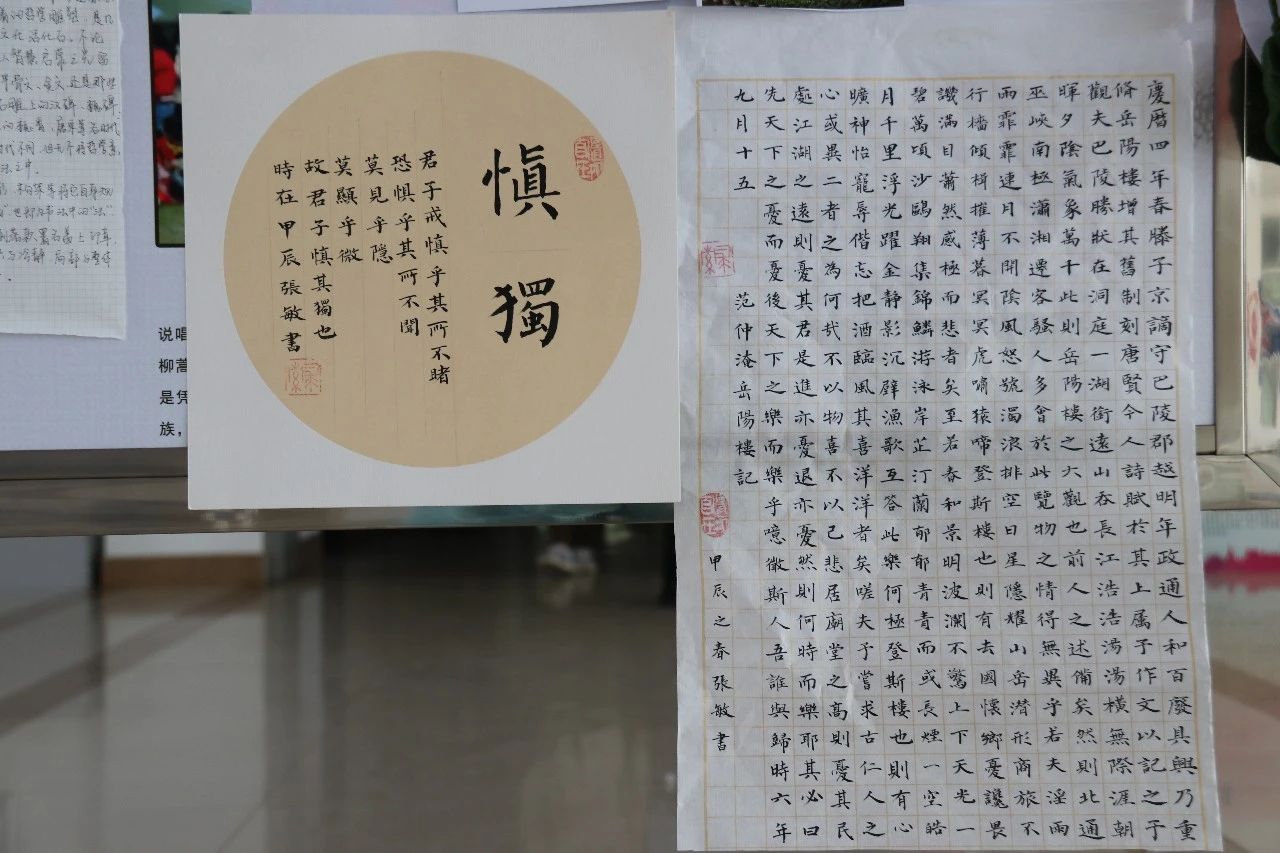 慎獨
君子戒慎乎其所不睹
恐懼乎其所不聞
莫見乎隱
莫顯乎微
故君子慎其獨也
時在甲辰張敏書
慶曆四年春滕子京謫守巴陵郡越明年政通人和百廢具興乃重
脩岳陽樓增其舊制刻唐賢今人詩賦於其上属予作文以記之予
觀夫巴陵勝狀在洞庭一湖銜遠山吞長江浩浩湯湯橫無際涯朝
暉夕陰氣象萬千此則岳陽樓之大觀也前人之述備矣然則北通
巫峽南極瀟湘遷客騷人多會於此覽物之情得無異乎若夫淫雨
雨霏霏連月不開陰風怒號濁浪排空日星隱耀山岳潛形商旅不
行檣傾楫摧薄暮冥冥虎嘯猿啼登斯樓也則有去國懷鄉憂讒畏
譏滿目蕭然感極而悲者矣至若春和景明波瀾不驚上下天光一
碧萬頃沙鷗翔集錦鱗游泳岸芷汀蘭郁郁青青而或長煙一空皓
月千里浮光躍金靜影沉璧漁歌互答此樂何極登斯樓也則有心
曠神怡寵辱偕忘把酒臨風其喜洋洋者矣嗟夫予嘗求古仁人之
心或異二者之為何哉不以物喜不以己悲居廟堂之高則憂其民
處江湖之遠則憂其君是進亦憂退亦憂然則何時而樂耶其必曰
先天下之憂而憂後天下之樂而樂乎噫微斯人吾誰與歸時六年
九月十五
范仲淹岳陽樓記
甲辰之春張敏書
说唱
柳蒿
是凭
族，